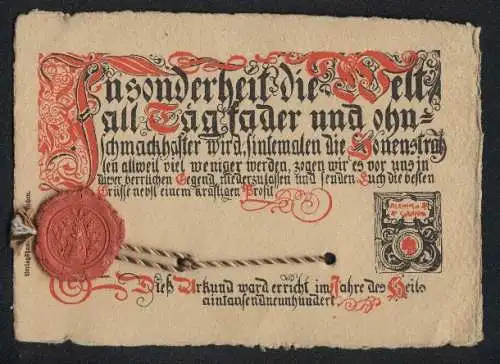 Insonderheit die Welt
all Tag fader und ohn=
schmackhafter wird, sintemalen die Sonenstrah
len allweil viel weniger werden, zogen wir es vor uns in
dieser herrlichen Gegend niederzulassen und senden Euch die besten
Grüsse nebst einem kräftigen Prosit
Dieß Urkund ward erricht im Jahre des Heils
aintausendneunhundert